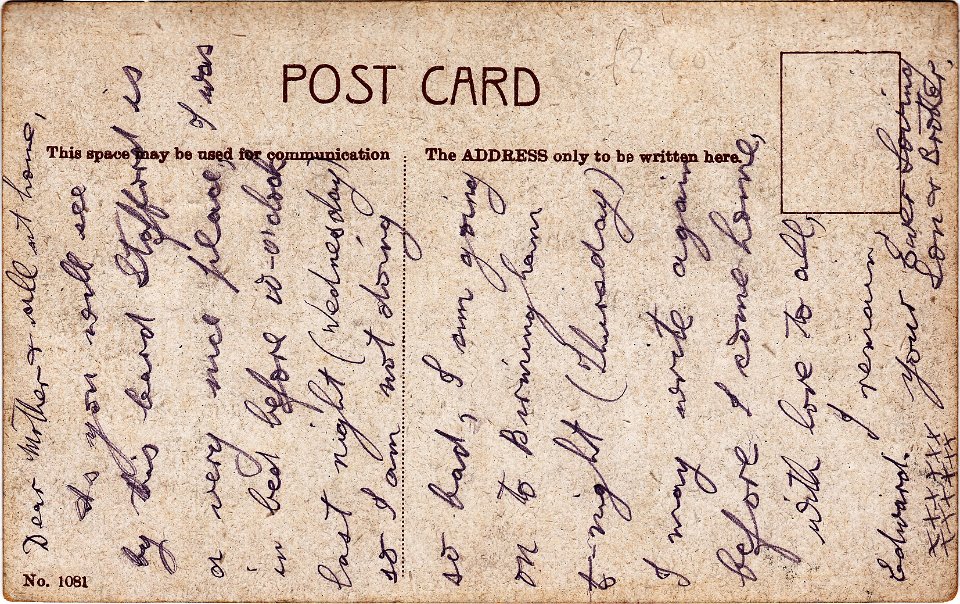 POST CARD
This space may be used for communication
The ADDRESS only to be written here.
Dear Mother & all at home,
As you will see
by this card Stafford is
a very nice place, I was
in bed before 10-o'clock
last night (Wednesday)
so I am not doing
so bad, I am going
on to Birmingham
t-night (Thursday)
I may write again
before I come home,
with love to all,
I remain
your Ever Loving
Son & Brother,
Edward.
xxxxx
xxxxx
No. 1081